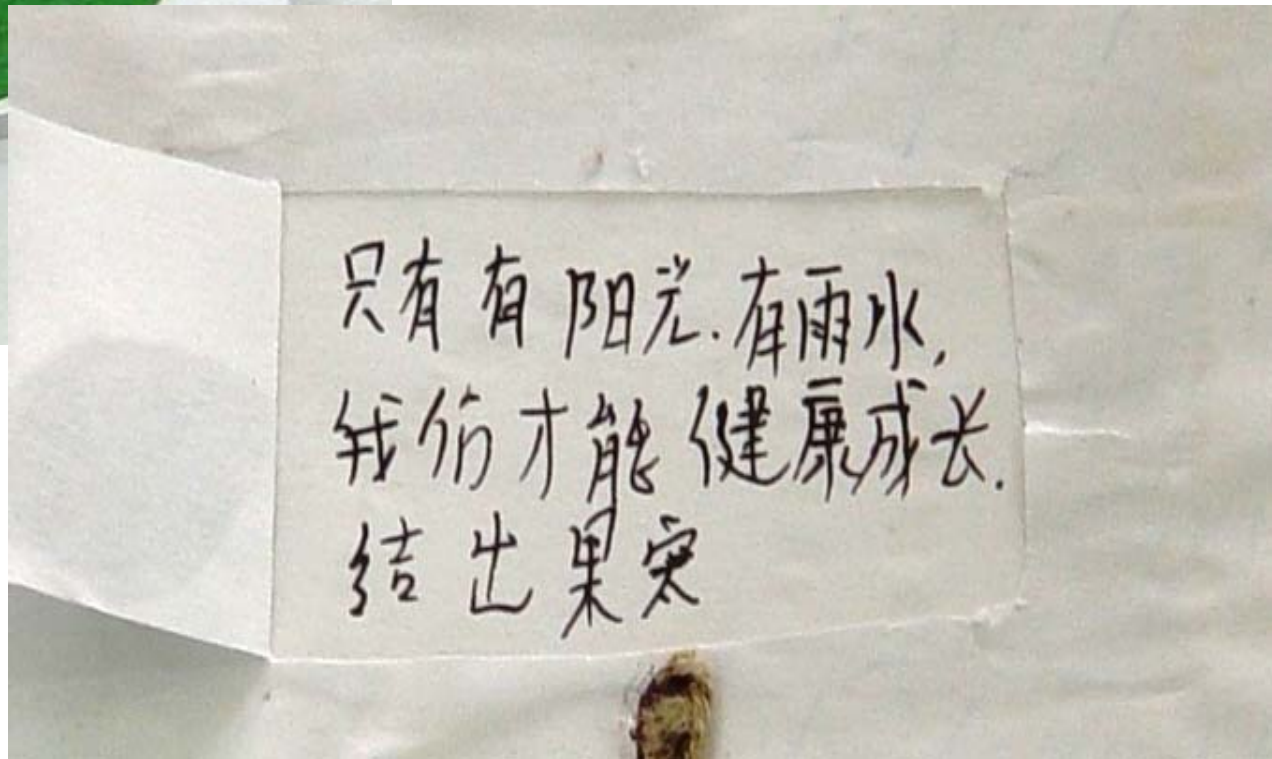 只有有阳光.有雨水,
我们才能健康成长.
结出果实